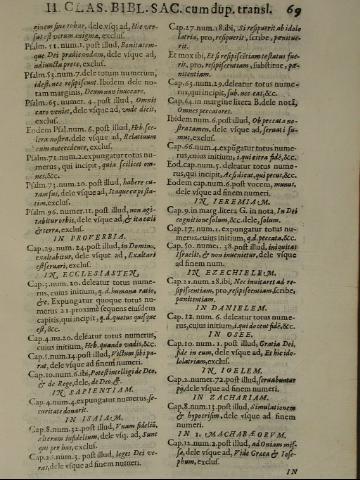 II. CLAS. BIBL. SAC. cum dup. transl. 69
exclus.
Psalm. 51. num. 1. post illud, Bonitatem-
que Dei prædicandam, dele vsque ad,
exclus.
Psalm. 53. num. 7. dele totum numerum,
idest. nec respisimus. Ibidem dele no-
tam marginis, Demum innocare.
Psalm. 65. numer. 4. post illud, Omnit
care venias, dele vsque ad, vnde dicit,
exclus.
Eodem Psal. num. 6. post illud, Hoc sce-
lera nostra, dele vsque ad,
cum antecedente, exclus.
Psalm. 71. num. 2. expungatur totus nu-
merus, qui incipit, quia
nes, &c.
Psalm. 73. num. 20. post illud, habere cu-
ram, dele vsque ad, Itaque
stu-
tim, exclus.
Psalm. 96. numer. 11. post illud, non agi-
tabitur orbis, dele vsque ad, &
& terra, exclus.
IN PROVERBIA.
Cap. 29. num. 24. post illud, in Domino,
exaltabitur, dele vsque ad, Exaltari
exclus.
IN ECCLESIASTEN.
Cap. 3. num. 20. deleatur totus nume-
rus, cuius initium, q. d. immana ratio,
&c. Expungatur quoque totus nu-
merus 21. proximè sequens eiusdem
capitis, qui incipit, q. d. quotus quisque
est, &c.
Cap. 4. nu. 20. deleatur totus numerus,
cuius initium, Heb. quando vadis, &c.
Cap. 5. num. 14. post illud, Victum sibi pa-
rat, dele vsque ad finem numeri.
Cap. 10. num. 6. ibi, Præest intelligi de Deo,
& de Rege, dele, de Deo, &.
IN SAPIENTIAM.
Cap. 4. num. 4. expungatur numerus, se-
donare.
IN ISAIAM.
Cap. 8. num. 32. post illud, Vnam fidelium,
alteram infidelium, dele vsq. ad, Sunt
qui per hos, exclus.
Cap. 26. num. 3. post illud, leges Dei ve-
ras, dele vsque ad finem numeri.
Cap. 27. num. 18. ibi, Si respuerit ab idolo
latria, pro, respuerit, scribe, pœnitue-
rit.
Et mox ibi, Et si respicientibus futurus fue-
rit, pro, respicientibus, substitue, pœ-
nitentiam.
Cap. 63. num. 29. deleatur totus nume-
rus, qui incipit, sub. nos eas, &c.
Cap. 64. in margine litera B. dele notā,
Omnes peccatores.
Ibidem num. 6. post illud, Ob peccata no-
stra tamen, dele vsque ad, seruati su-
mus, exclus.
Cap. 66. num. 4. expūgatur totus nume-
rus, cuius initium, qui citra fidē, &c.
Eod. cap. num. 5. deleatur totus nume-
rus, qui incipit, Ac si dicat, qui pecus, &c.
Eodem cap. num. 6. post vocem, munus,
dele vsque ad finem numeri.
IN IEREMIAM.
Cap. 9. in marg. litera G. in nota, In Dei
cognitione solum, &c. dele, solum.
Cap. 17. num. 1. expungatur totus nu-
merus, cuius initium, q. d. peccata, &c.
Cap. 50. numer. 38. post illud, iniquitas
Israelis, & non inuenietur, dele vsque
ad finem num.
IN EZECHIELEM.
Cap. 21. num. 28. ibi, Nec inuitaret ad re-
spiscentiam, pro, respiscentiam, scribe,
pœnitentiam.
IN DANIELEM.
Cap. 12. num. 6. deleatur totus nume-
rus, cuius initium, i. qui docent fidē, &c.
IN OSEE.
Cap. 10. num. 1. post illud, Gratia Dei,
fide in eum, dele vsque ad, Et hic ido-
lolatriam, exclus.
IN IOELEM.
Cap. 2. numer. 72. post illud, seruabuntur
dele vsque ad finem numeri.
IN ZACHARIAM.
Cap. 8. num. 13. post illud, simulationem
& hypocrisim, dele vsque ad finem
numeri.
IN 1. MACHABÆORVM.
Cap. 12. num. 2. post illud, ad Oniam mis-
sa, dele vsque ad, Vide Græca & Iose-
phum, exclus.
IN